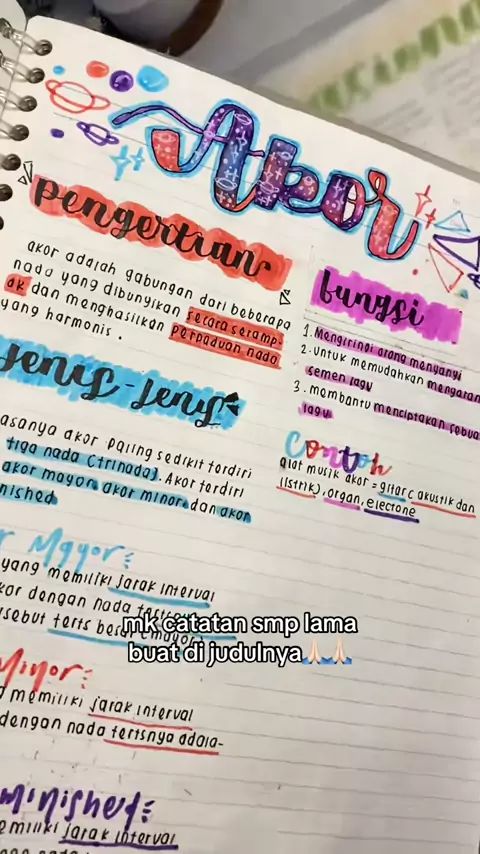 Akor
Pengertian
akor adalah gabungan dari beberapa
nada yang dibunyikan secara seramp-
ak dan menghasilkan perpaduan nada
yang harmonis.
Jenis-Jenis
asanya akor paling sedikit terdiri
tiga nada (trinada). Akor terdiri
akor mayor, akor minor, dan akor
nished
Mayor:
yang memiliki jarak interval
kor dengan nada
sebut terts besar
Minor:
memiliki jarak interval
dengan nada tertsnya adala-
minished:
emiliki jarak interval
fungsi
1. Mengiringi orang menyanyi
2. untuk memudahkan mengaran
semen lagu
3. membantu menciptakan sebua
lagu
Contoh
alat musik akor = gitar (akustik dan
listrik), organ, electone
mk catatan smp lama
buat di judulnya🙏🏻🙏🏻